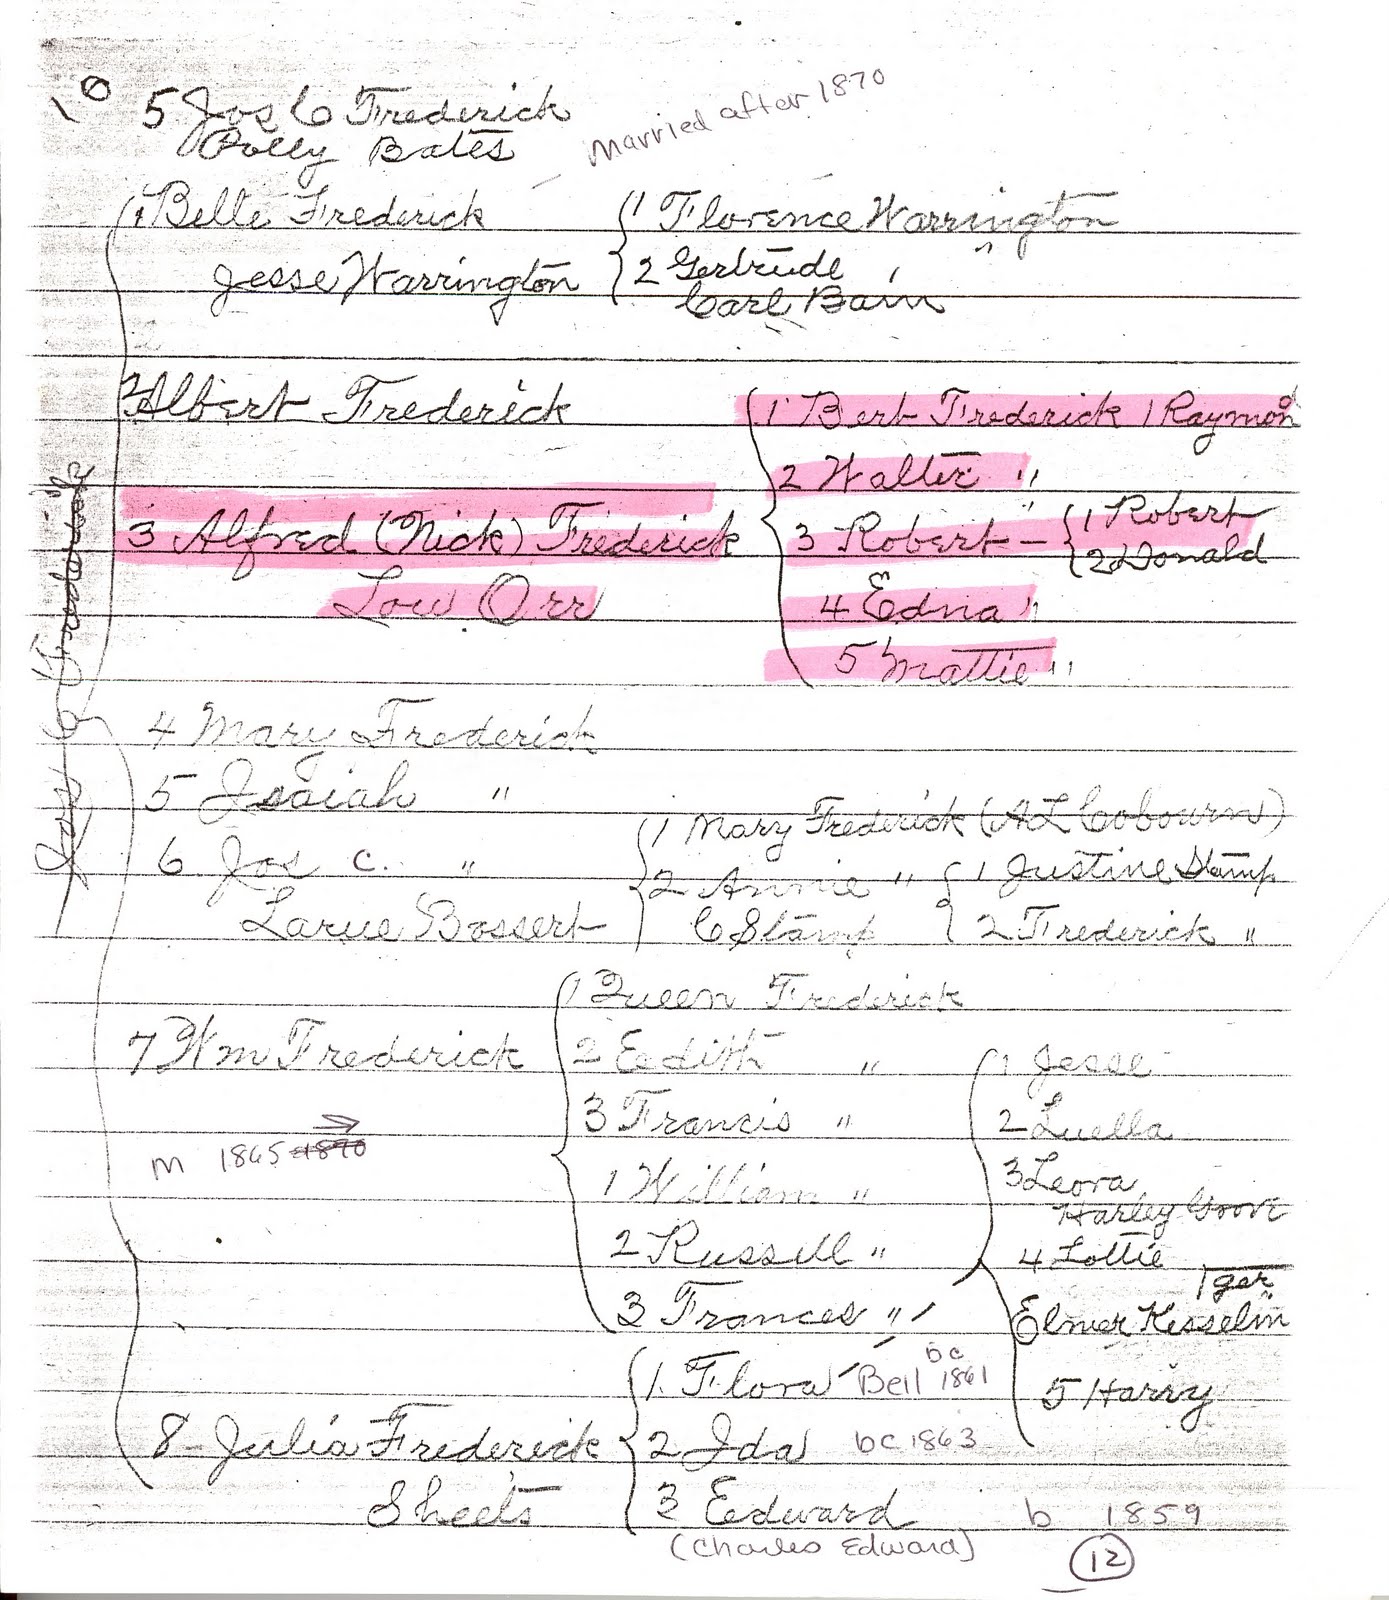 10 5 Jos C Frederick
Polly Bates
Married after 1870
1 Belle Frederick { 1 Florence Warrington
Jesse Warrington { 2 Gertrude "
Carl Bain
2 Albert Frederick
{ 1 Bert Frederick 1 Raymond
2 Walter "
3 Alfred (Nick) Frederick { 3 Robert - { 1 Robert
2 Donald
Low Orr 4 Edna "
5 Mattie "
Jos C Frederick
4 Mary Frederick
5 Isaiah "
{ 1 Mary Frederick (AL Cobourn)
6 Jos C. " { 2 Annie " { 1 Justine Stamp
Larue Bossert C Stamp { 2 Frederick "
{ 1 Queen Frederick
7 Wm Frederick { 2 Edith " { 1 Jesse
3 Francis " 2 Luella
m 1865 1870
1 William " 3 Leora
Harley Grove
2 Russell " 4 Lottie
ger
3 Frances " Elmer Kesselin
{ 1. Flora Bell bc 1861
5 Harry
8 - Julia Frederick { 2 Ida bc 1863
Sheets { 3 Edward b 1859
(Charles Edward)
12